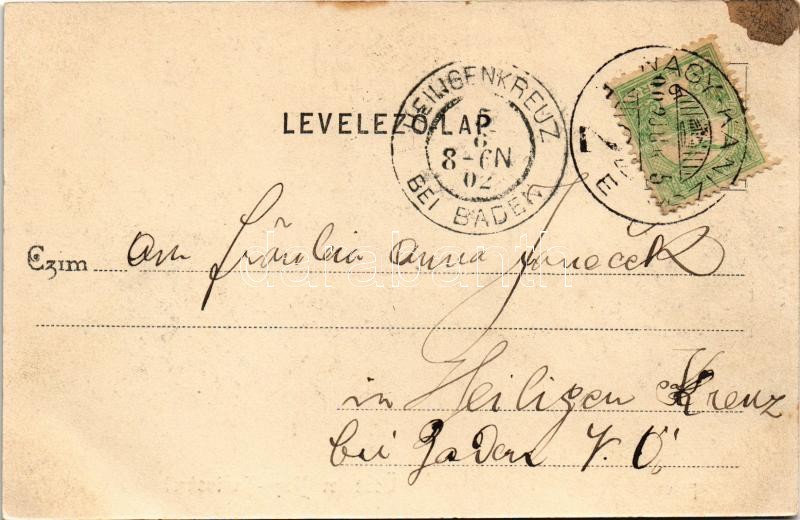 LEVELEZŐ-LAP
HEILIGENKREUZ
5
6
8-6N
02
BEI BADEN
NAGY-KANIZ
Czim An Fräulein Anna Janeček
in Heiligen Kreuz
bei Baden N. Ö.
darabanth